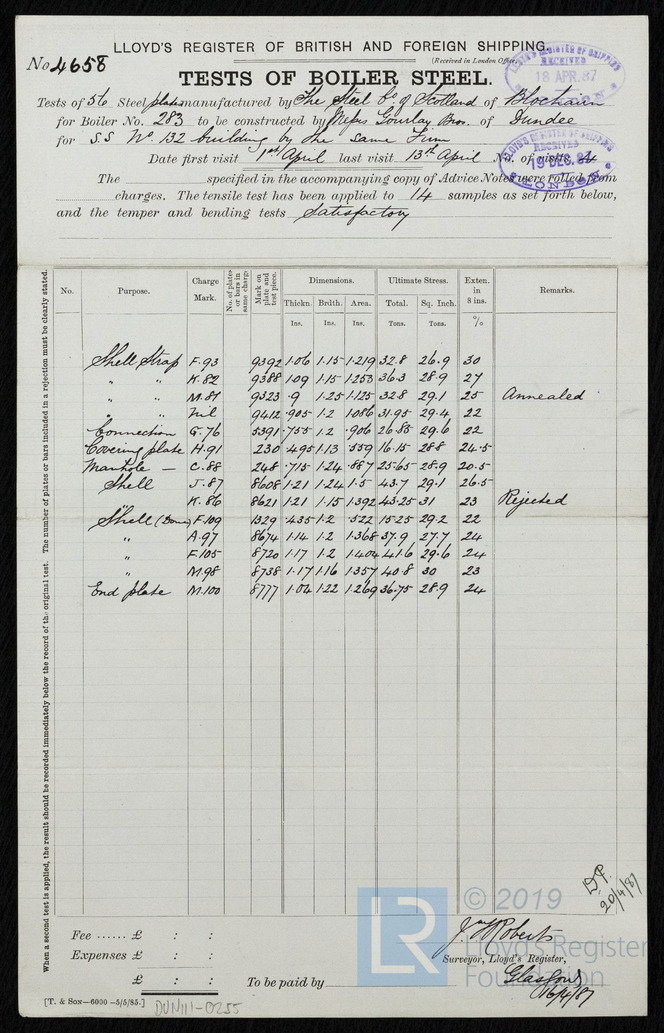 LLOYD'S REGISTER OF BRITISH AND FOREIGN SHIPPING.
No 4658
(Received in London Office,
LLOYD'S REGISTER OF SHIPPING RECEIVED 18 APR. 87 LONDON
TESTS OF BOILER STEEL.
Tests of 56 Steel plates manufactured by The Steel Co of Scotland of Blochairn
for Boiler No. 283 to be constructed by Messrs Gourlay Bros. of Dundee
for S.S No. 132 building by the same Firm
LLOYD'S REGISTER OF SHIPPING RECEIVED 19 DEC. LONDON
Date first visit 1st April last visit 13th April No. of visits
The specified in the accompanying copy of Advice Notes were rolled from
charges. The tensile test has been applied to 14 samples as set forth below,
and the temper and bending tests Satisfactory
When a second test is applied, the result should be recorded immediately below the record of the original test. The number of plates or bars included in a rejection must be clearly stated.
No. Purpose. Charge Mark. No. of plates or bars in same charge Mark on plate and test piece. Dimensions. Ultimate Stress. Exten. in 8 ins. Remarks.
Thickn. Brdth. Area. Total. Sq. Inch.
Ins. Ins. Ins. Tons. Tons. %
Shell Strap F.93 9392 1.06 1.15 1.219 32.8 26.9 30
" " K.82 9388 1.09 1.15 1.253 36.3 28.9 27
" " M.81 9323 .9 1.25 1.125 32.8 29.1 25 Annealed
" " Nil 9412 .905 1.2 1.086 31.95 29.4 22
Connection G.76 5391 .755 1.2 .906 26.85 29.6 22
Covering plate H.91 230 .495 1.13 .559 16.15 28.8 24.5
Manhole — C.88 248 .715 1.24 .887 25.65 28.9 20.5
Shell J.87 8608 1.21 1.24 1.5 43.7 29.1 26.5
K.86 8621 1.21 1.15 1.392 43.25 31 23 Rejected
Shell (Dome) F.109 1329 .435 1.2 .522 15.25 29.2 22
" A.97 8674 1.14 1.2 1.368 37.9 27.7 24
" F.105 8720 1.17 1.2 1.404 41.6 29.6 24
" M.98 8738 1.17 1.16 1.357 40.8 30 23
End plate M.100 8777 1.04 1.22 1.269 36.75 28.9 24
D.F.
20/4/87
LR © 2019
Lloyd's Register
Foundation
Fee ...... £ : :
Expenses £ : :
£ : :
Roberts
Surveyor, Lloyd's Register,
To be paid by
Glasgow
16/4/87
[T. & SON—6000—5/5/85.]
DUN111-0255